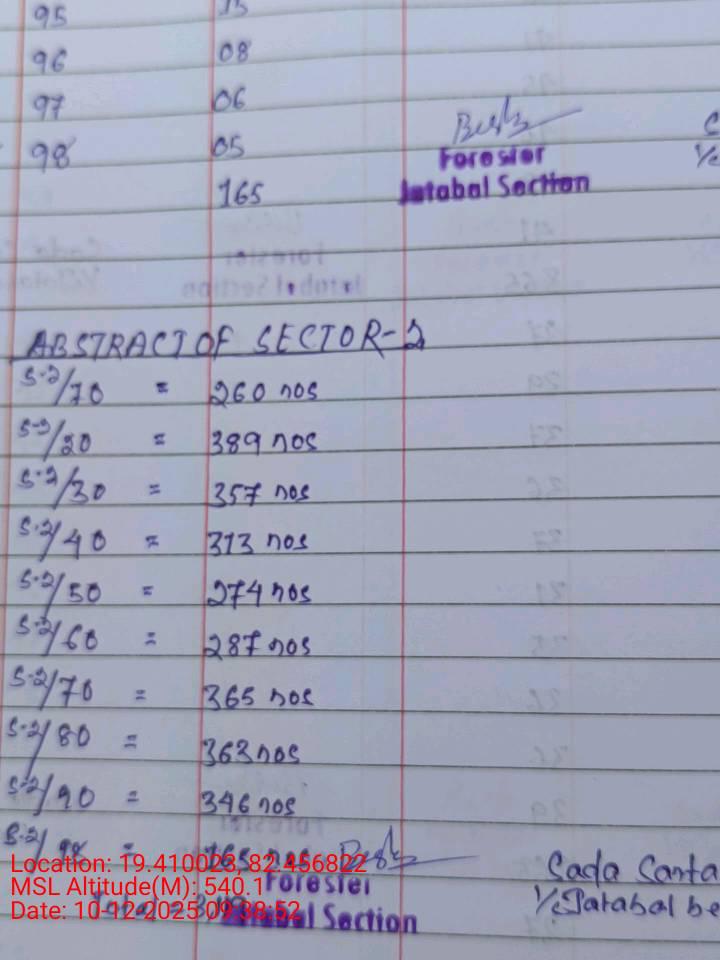 95 15
96 08
97 06
98 05
165
Forester
Jatabal Section
ABSTRACT OF SECTOR-2
S-2/10 = 260 nos
S-2/20 = 389 nos
S-2/30 = 357 nos
S-2/40 = 313 nos
S-2/50 = 274 nos
S-2/60 = 287 nos
S-2/70 = 365 nos
S-2/80 = 363 nos
S-2/90 = 346 nos
S-2/98 = 165 nos
Sada Santa
Location: 19.410023,82.456822
MSL Altitude(M): 540.1
Forester
I/c Jatabal be
Date: 10-12-2025 09:38:52
Total =
Section